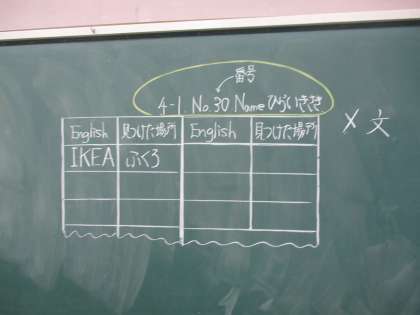 番号
4-1 No.30 Name ひらいききき
English 見つけた場所 English 見つけた場所
IKEA ふくろ
× 文